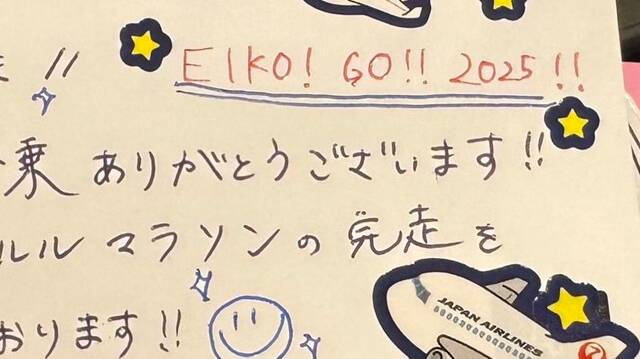 !!
EIKO! GO!! 2025!!
乗ありがとうございます!!
ルルマラソンの完走を
おります!!
JAPAN AIRLINES